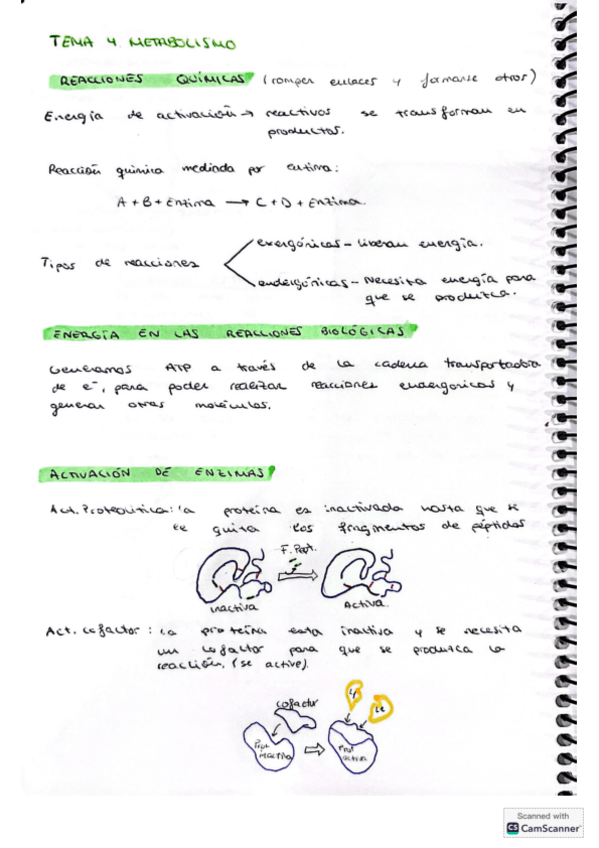 TEMA 4. METABOLISMO
REACCIONES QUÍMICAS (romper enlaces y formarse otros)
Energía de activación → reactivos se transforman en
productos.
Reacción química mediada por enzima:
A + B + Enzima → C + D + Enzima.
Tipos de reacciones
exergónicas - Liberan energía.
endergónicas - Necesita energía para
que se produzca.
ENERGÍA EN LAS REACCIONES BIOLÓGICAS
Generamos ATP a través de la cadena transportadora
de e-, para poder realizar reacciones endergónicas y
generar otras moléculas.
ACTIVACIÓN DE ENZIMAS
Act. Proteolítica: la proteína es inactivada hasta que se
le quita los fragmentos de péptidos
F. Pept.
inactiva
Activa.
Act. cofactor: la proteína esta inactiva y se necesita
un cofactor para que se produzca la
reacción, (se active).
cofactor
Prot
inactiva
Prot
activa
Scanned with
CS CamScanner